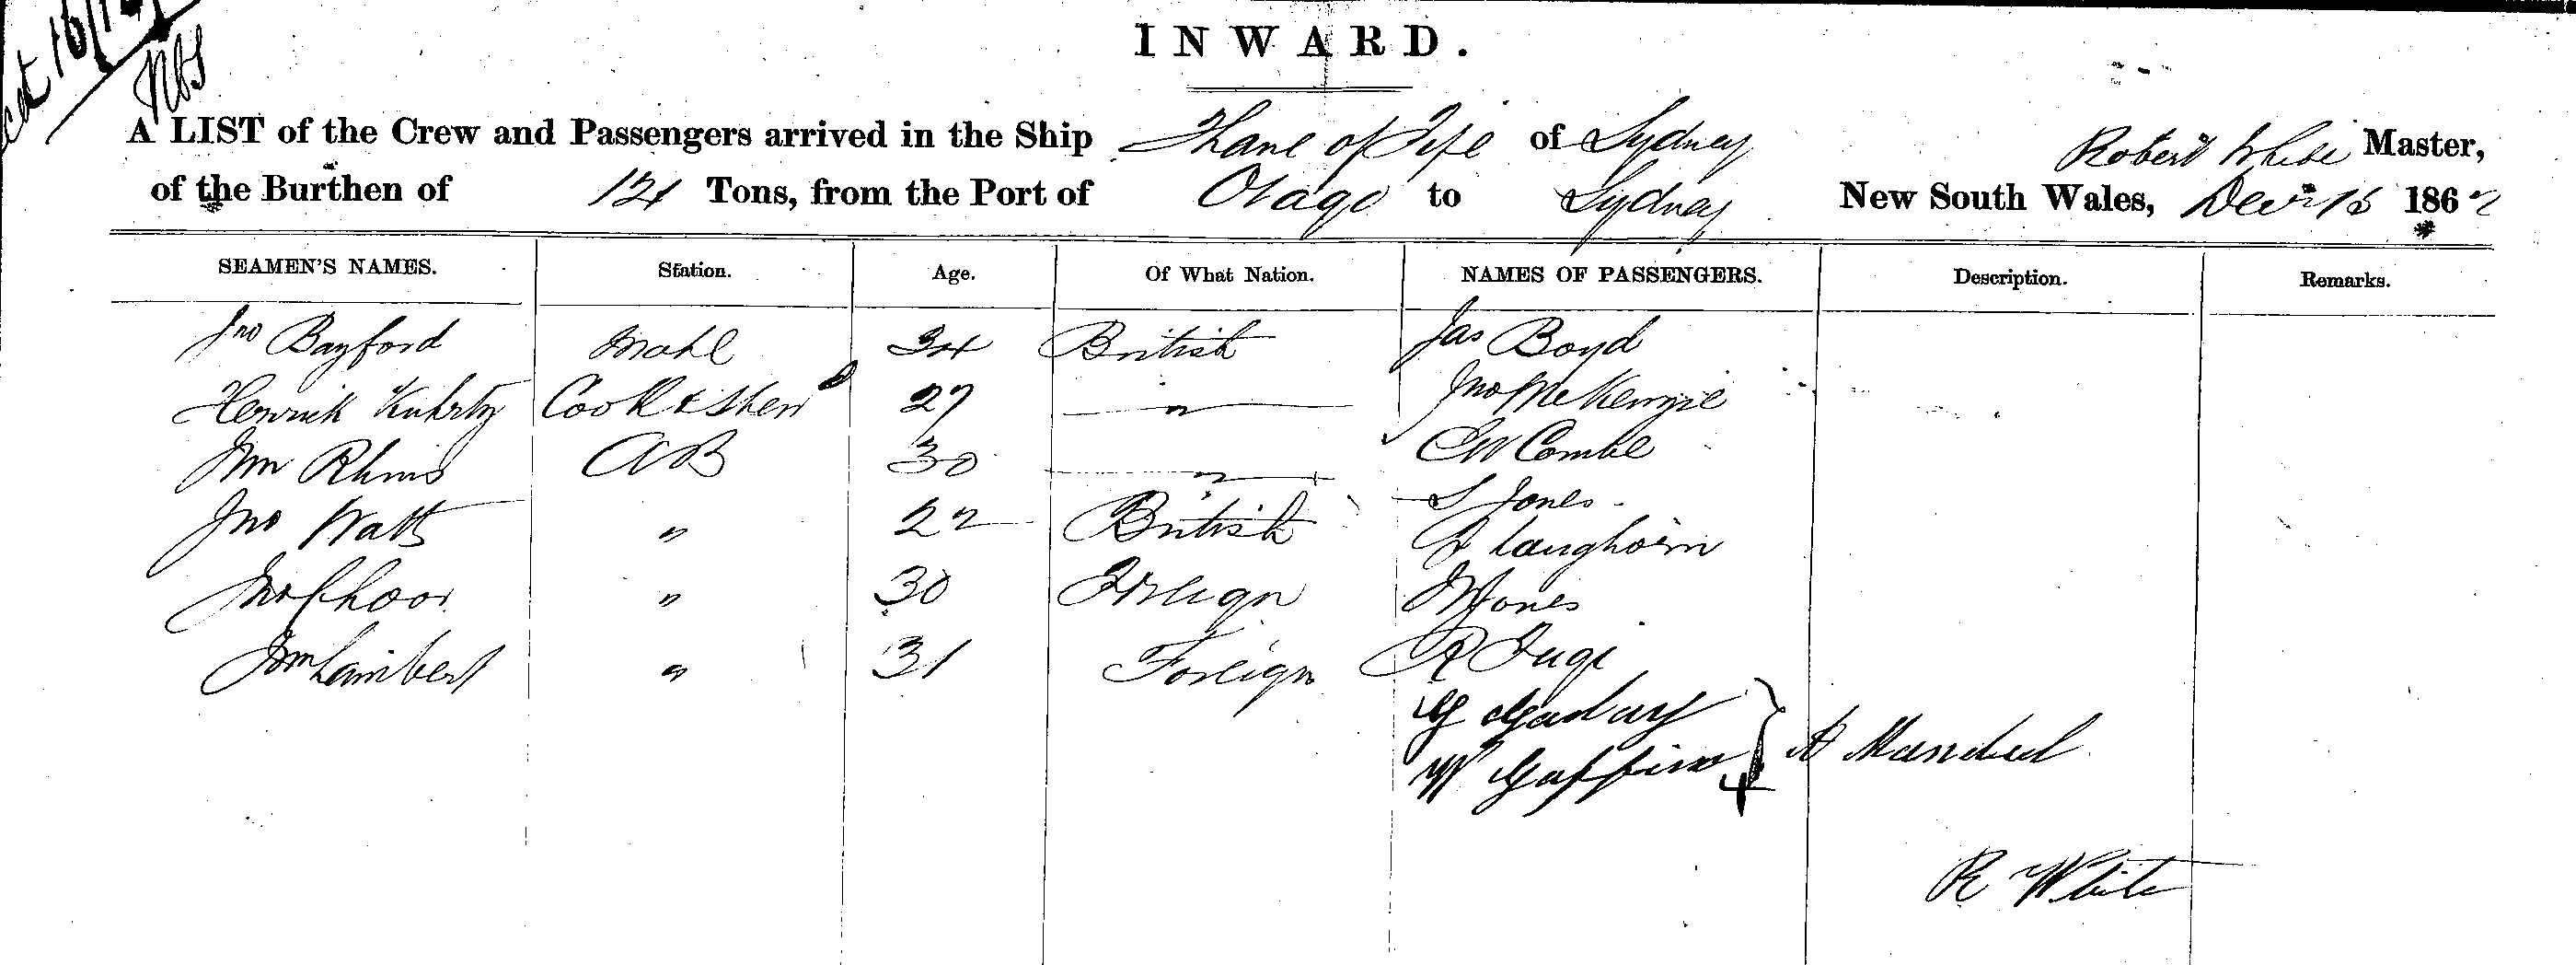 16/12
INWARD.
A LIST of the Crew and Passengers arrived in the Ship Thane of Fife of Sydney Robert White Master,
of the Burthen of 121 Tons, from the Port of Otago to Sydney New South Wales, Decr 15 1862
SEAMEN'S NAMES. Station. Age. Of What Nation. NAMES OF PASSENGERS. Description. Remarks.
Jno Bayford Mate 34 British Jas Boyd
Henrick Cook & Stewd 27 " Jno McKenzie
Wm AB 30 " Combe
Jno Watts " 22 British S Jones
Jno " 30 Foreign Langhorn
Wm Lambert " 31 Foreign Jones
R
G
W
R White